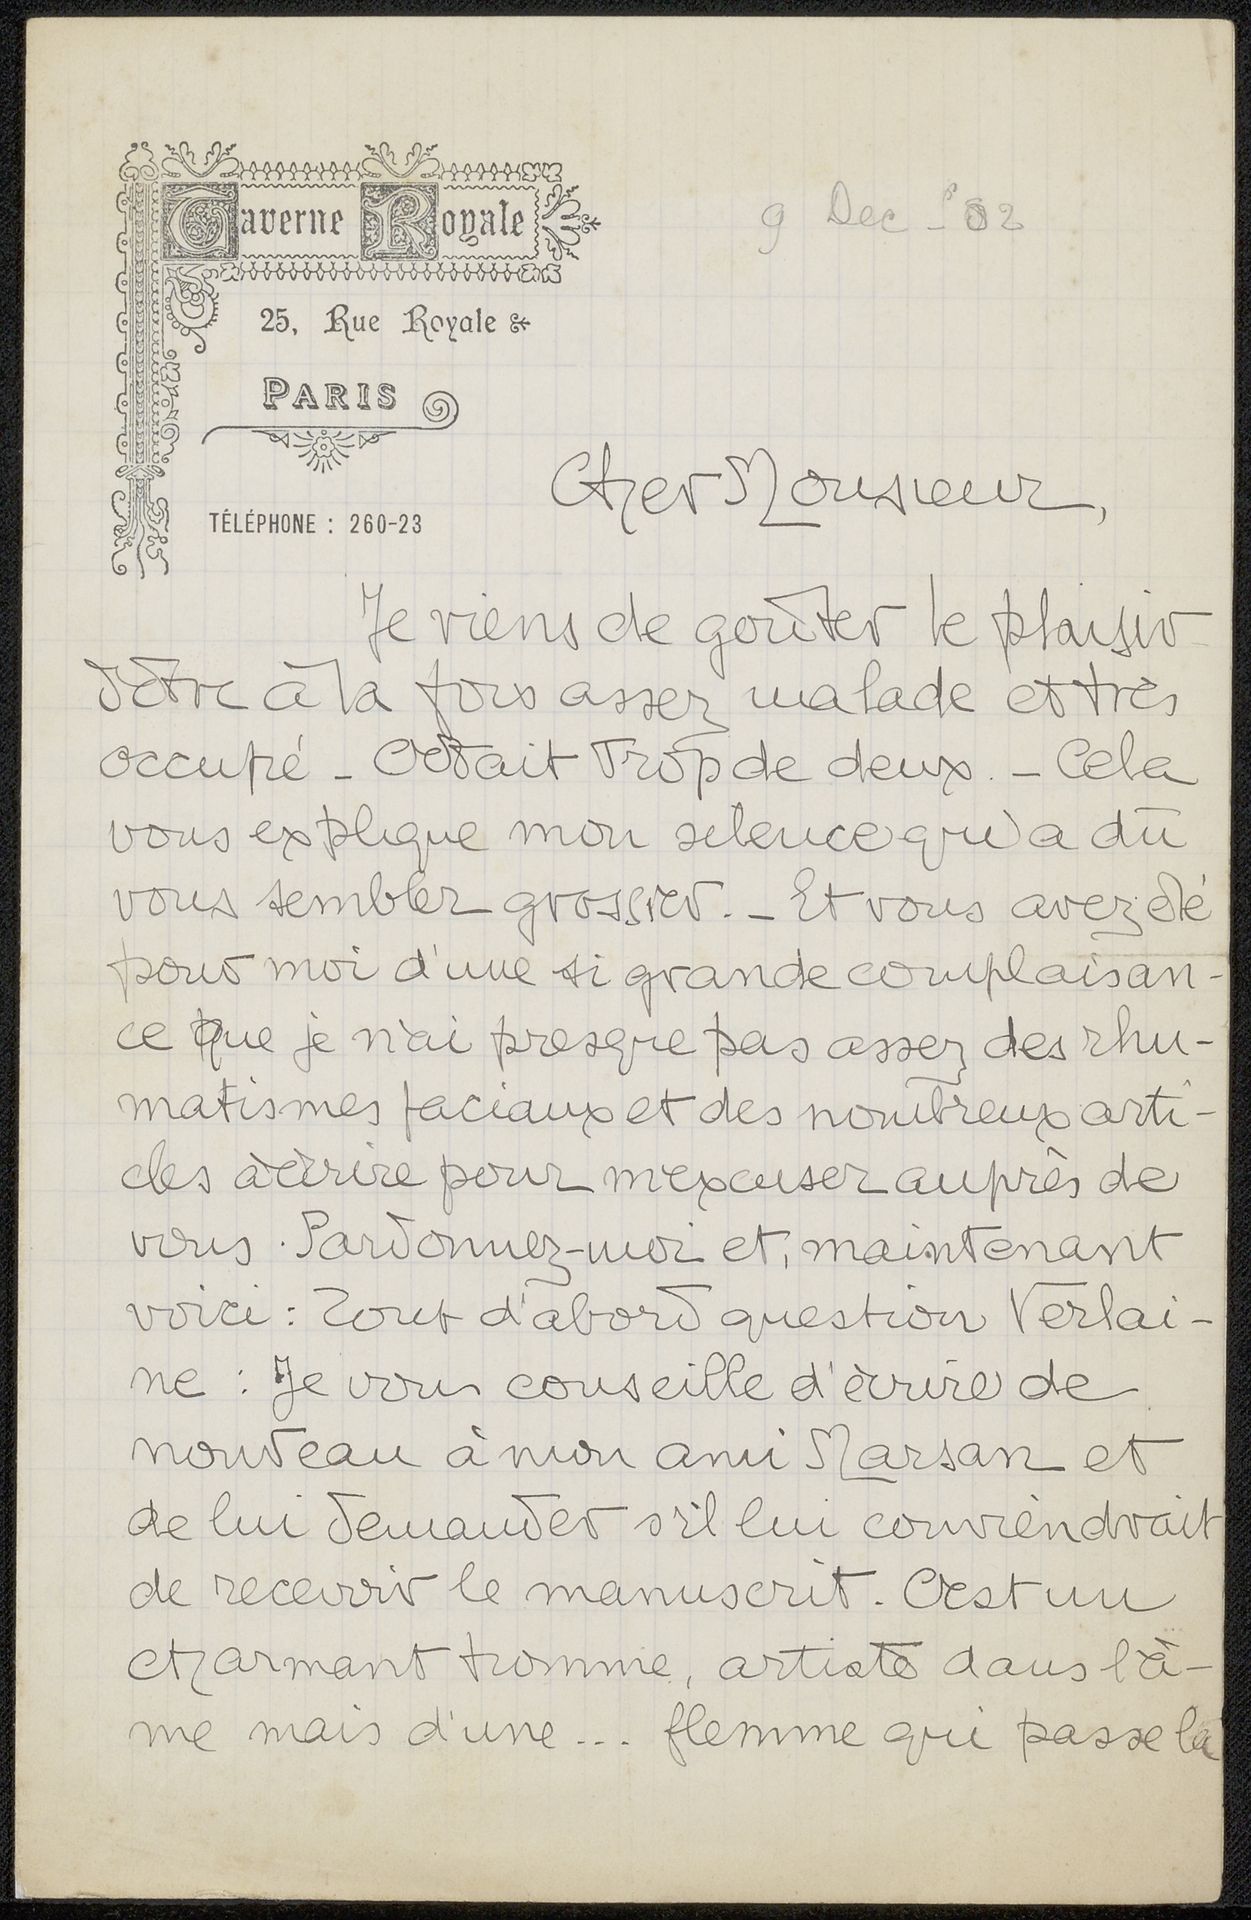 Taverne Royale
9 Dec - '02
25, Rue Royale
PARIS
TÉLÉPHONE : 260-23
Cher Monsieur,
Je viens de goûter le plaisir
d'être à la fois assez malade et très
occupé - C'était trop de deux. - Cela
vous explique mon silence qui a dû
vous sembler grossier. - Et vous avez été
pour moi d'une si grande complaisan-
ce que je n'ai presque pas assez des rhu-
matismes faciaux et des nombreux arti-
cles à écrire pour m'excuser auprès de
vous. Pardonnez-moi et, maintenant
voici : Tout d'abord question Verlai-
ne : Je vous conseille d'écrire de
nouveau à mon ami Marsan et
de lui demander s'il lui conviendrait
de recevoir le manuscrit. C'est un
charmant homme, artiste dans l'â-
me mais d'une ... flemme qui passe la